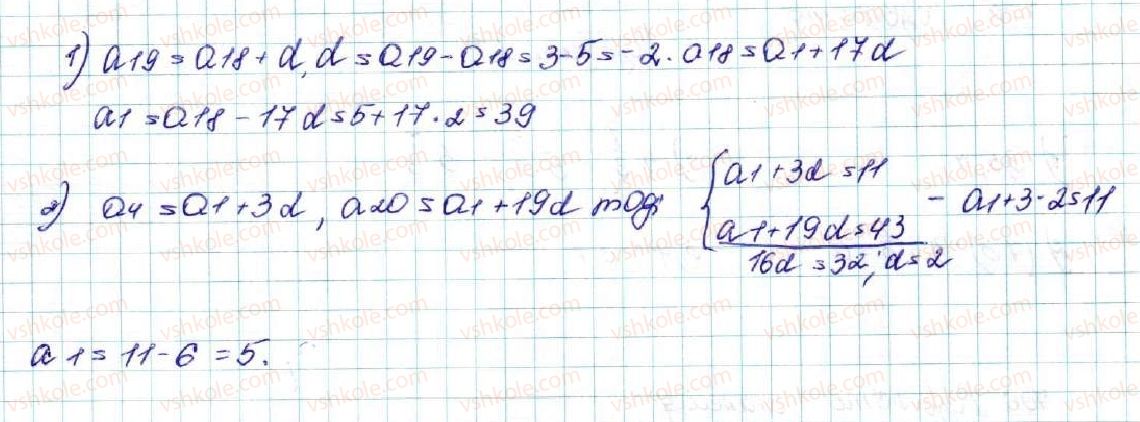 1) a19 = a18 + d, d = a19 - a18 = 3 - 5 = -2. a18 = a1 + 17d
a1 = a18 - 17d = 5 + 17 · 2 = 39
2) a4 = a1 + 3d, a20 = a1 + 19d тоді { a1 + 3d = 11
a1 + 19d = 43 - a1 + 3 · 2 = 11
16d = 32; d = 2
a1 = 11 - 6 = 5.